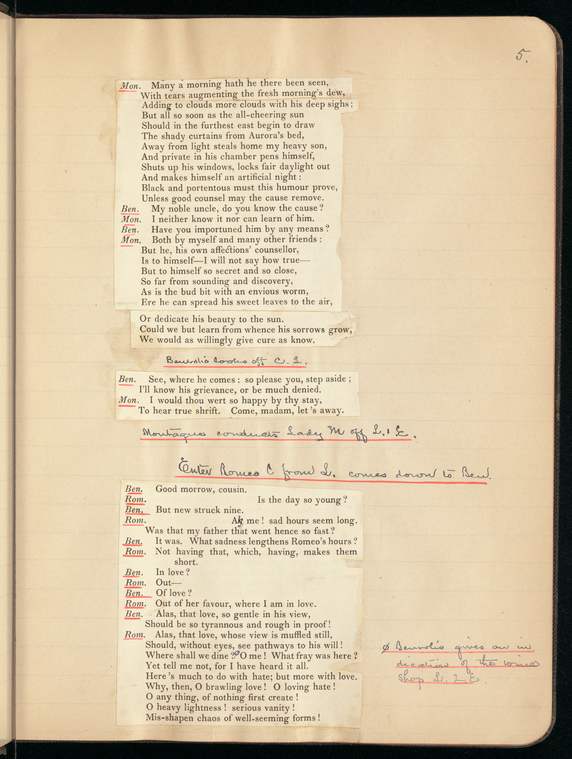 5.
Mon. Many a morning hath he there been seen,
With tears augmenting the fresh morning's dew,
Adding to clouds more clouds with his deep sighs;
But all so soon as the all-cheering sun
Should in the furthest east begin to draw
The shady curtains from Aurora's bed,
Away from light steals home my heavy son,
And private in his chamber pens himself,
Shuts up his windows, locks fair daylight out
And makes himself an artificial night:
Black and portentous must this humour prove,
Unless good counsel may the cause remove.
Ben. My noble uncle, do you know the cause?
Mon. I neither know it nor can learn of him.
Ben. Have you importuned him by any means?
Mon. Both by myself and many other friends:
But he, his own affections' counsellor,
Is to himself—I will not say how true—
But to himself so secret and so close,
So far from sounding and discovery,
As is the bud bit with an envious worm,
Ere he can spread his sweet leaves to the air,
Or dedicate his beauty to the sun.
Could we but learn from whence his sorrows grow,
We would as willingly give cure as know.
Benvolio looks off C. L.
Ben. See, where he comes: so please you, step aside;
I'll know his grievance, or be much denied.
Mon. I would thou wert so happy by thy stay,
To hear true shrift. Come, madam, let's away.
Montague conducts Lady M off L. 1 E.
Enter Romeo C from L. comes down to Ben.
Ben. Good morrow, cousin.
Rom. Is the day so young?
Ben. But new struck nine.
Rom. Ah me! sad hours seem long.
Was that my father that went hence so fast?
Ben. It was. What sadness lengthens Romeo's hours?
Rom. Not having that, which, having, makes them
short.
Ben. In love?
Rom. Out—
Ben. Of love?
Rom. Out of her favour, where I am in love.
Ben. Alas, that love, so gentle in his view,
Should be so tyrannous and rough in proof!
Rom. Alas, that love, whose view is muffled still,
Should, without eyes, see pathways to his will!
Where shall we dine? ø O me! What fray was here?
Yet tell me not, for I have heard it all.
Here's much to do with hate; but more with love.
Why, then, O brawling love! O loving hate!
O any thing, of nothing first create!
O heavy lightness! serious vanity!
Mis-shapen chaos of well-seeming forms!
ø Benvolio gives an in
direction of the
shop L. 2. E.